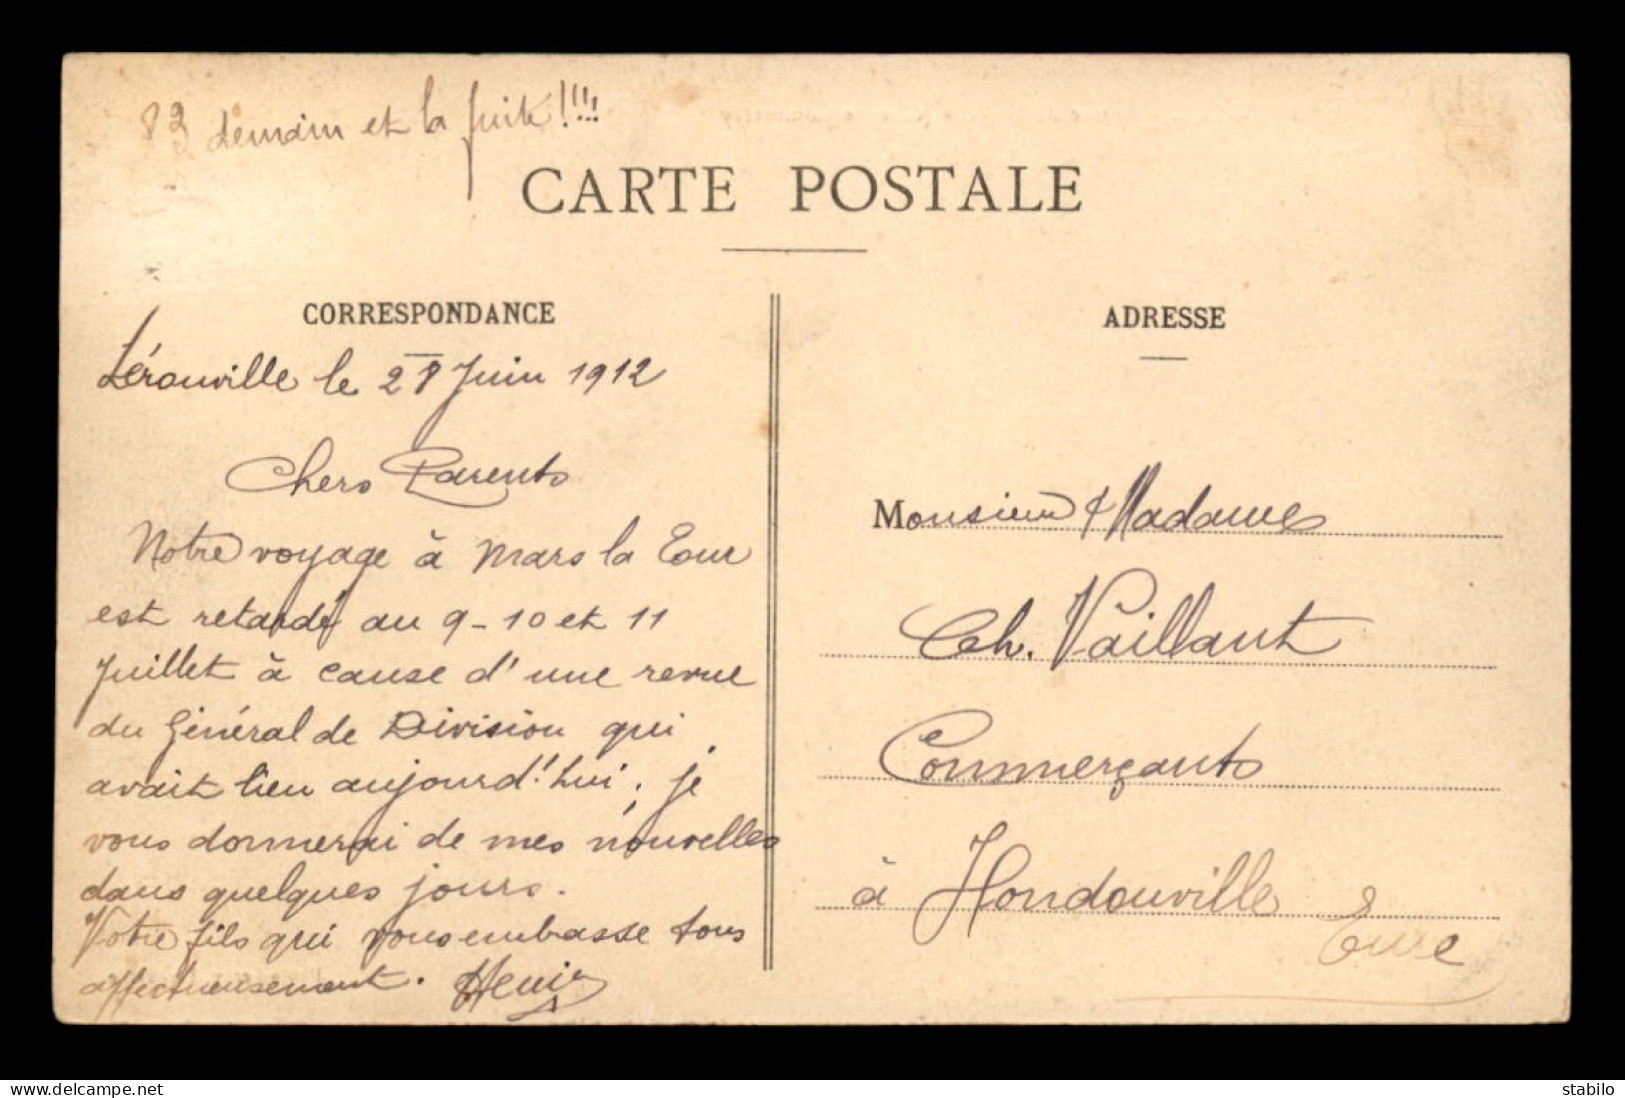 83 demain et la fuite !!!!
CARTE POSTALE
CORRESPONDANCE
Lérouville le 28 Juin 1912
Chers Parents
Notre voyage à Mars la Tour
est retardé au 9-10 et 11
Juillet à cause d'une revue
du Général de Division qui
avait lieu aujourd'hui ; je
vous donnerai de mes nouvelles
dans quelques jours.
Votre fils qui vous embrasse tous
affectueusement. Henri
ADRESSE
Monsieur & Madame
Ch. Vaillant
Commerçants
à Hondouville
Eure
www.delcampe.net
stabilo